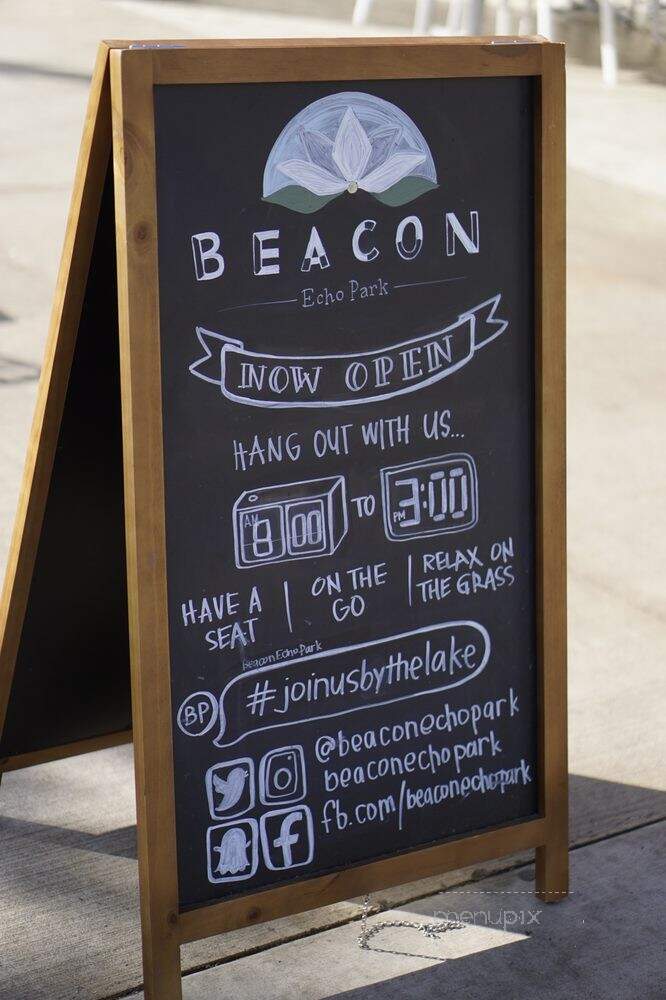 BEACON
Echo Park
NOW OPEN
HANG OUT WITH US...
AM 8:00 TO PM 3:00
HAVE A SEAT | ON THE GO | RELAX ON THE GRASS
BeaconEchoPark
BP #joinusbythelake
@beaconechopark
beaconechopark
fb.com/beaconechopark
menupix